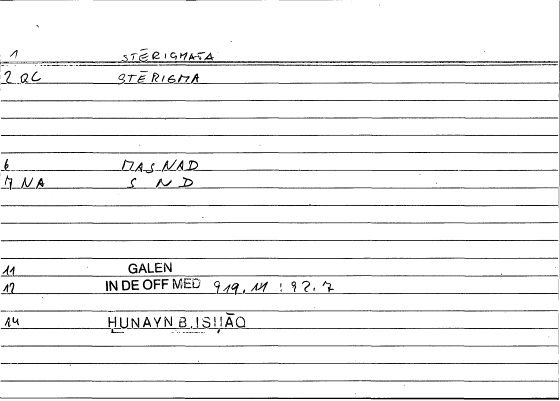 1 STĒRIGMATA
2 QC STĒRIGMA
6 MASNAD
7 NA S N D
11 GALEN
12 IN DE OFF MED 919, 11 : 92, 7
14 ḤUNAYN B. ISḤĀQ